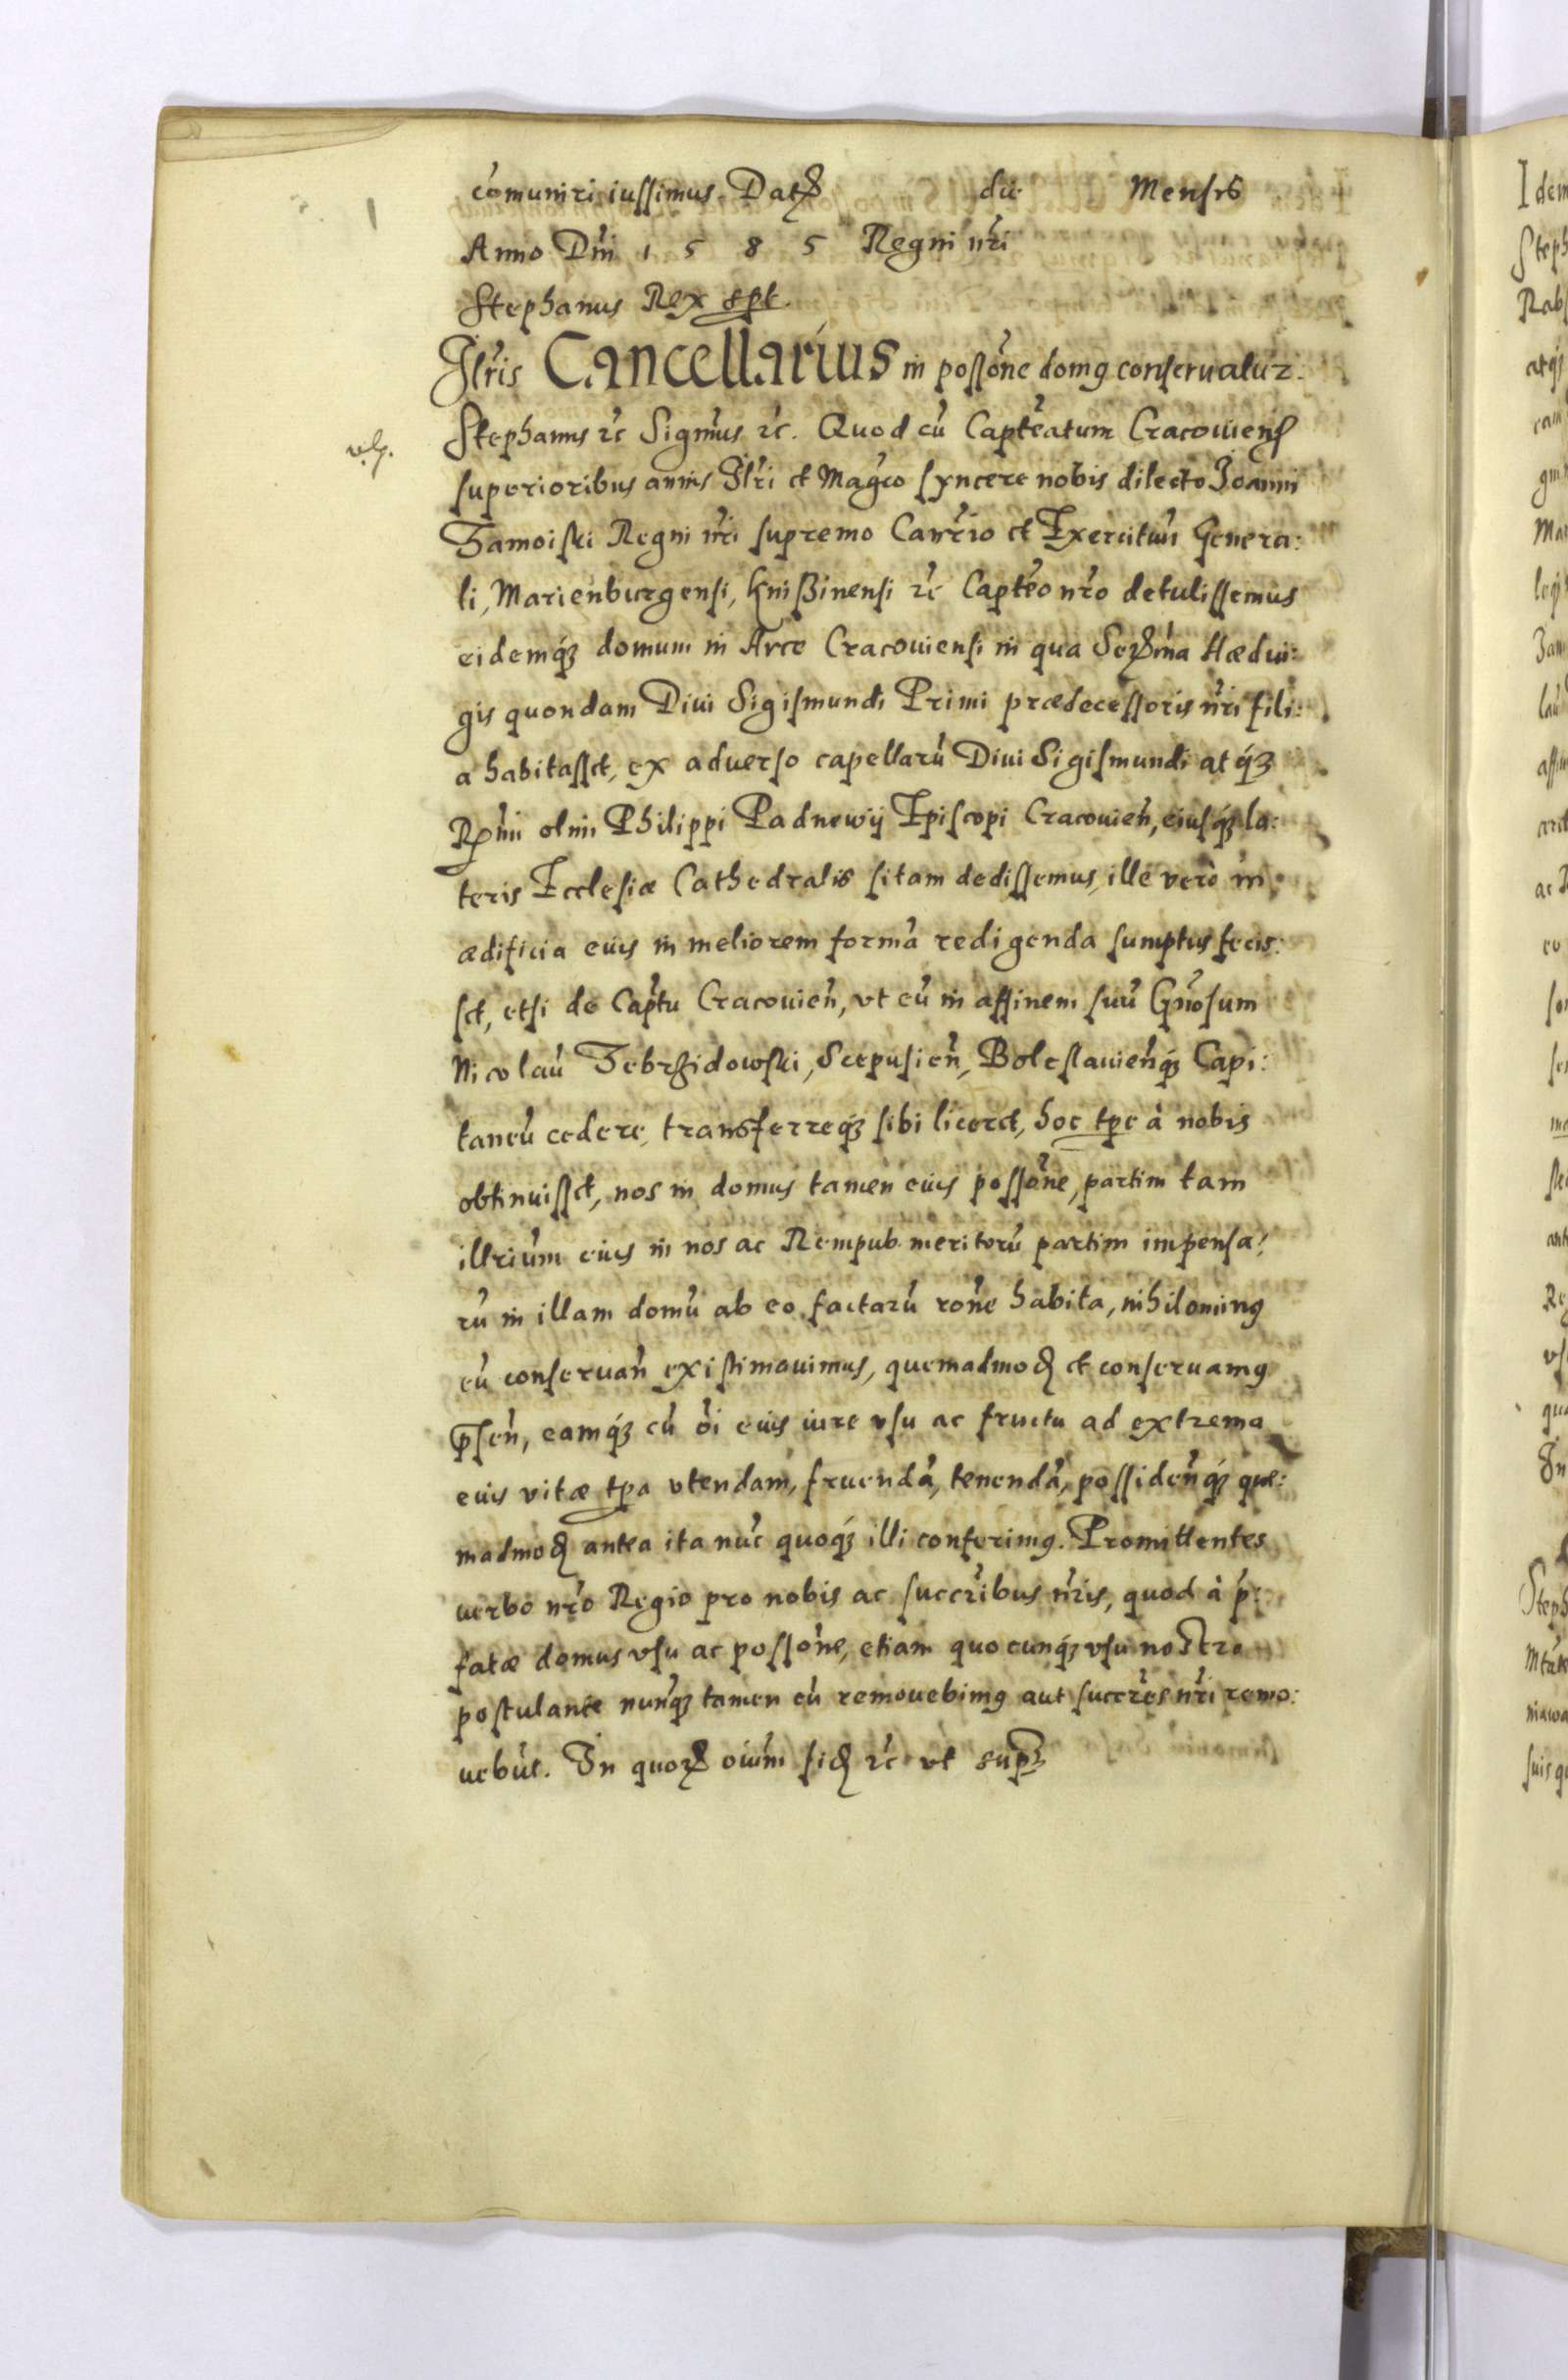 cōmuniri iussimus. Datꝭ die Mensis
Anno Dni 1585 Regni nri
Stephanus Rex spt.
Illris Cancellarius in possone domꝰ conseruatur.
Stephanus etc Sigmus etc. Quod cū Capteatum Cracouien̄
superioribus annis Illri et Magco syncere nobis dilecto Joanni
Zamoiski Regni nri supremo Canrio et Exercituū Genera:
li, Marienburgensi, Knißinensi etc Capteo nro detulissemus
eidemqꝫ domum in Arce Cracouiensi in qua Serma Hædui:
gis quondam Diui Sigismundi Primi prædecessoris nri fili:
a habitasset, ex aduerso capellarū Diui Sigismundi atqꝫ
Rmi olim Philippi Padnewij Episcopi Cracouien̄, eiusqꝫ la:
teris Ecclesiæ Cathedralis sitam dedissemus, ille verò in
ædificia eius in meliorem formā redigenda sumptus fecis:
set, etsi de Captu Cracouien̄, vt eū in affinem suū Gnosum
Nicolaū Zebrzidowski, Scepusien̄, Boleslauien̄qꝫ Capi:
taneū cedere, transferreqꝫ sibi liceret, hoc tpe à nobis
obtinuisset, nos in domus tamen eius possone, partim tam
illrium eius in nos ac Rempub. meritorū partim impensa:
rū in illam domū ab eo factarū rone habita, nihilominꝰ
eū conseruan̄ existimauimus, quemadmođ et conseruamꝰ
pn̄sen̄, eamqꝫ cū oi eius iure vsu ac fructu ad extrema
eius vitæ tpa vtendam, fruendā, tenendā, possiden̄qꝫ que:
madmođ antea ita nūc quoqꝫ illi conferimꝰ. Promittentes
verbo nro Regio pro nobis ac succribus nris, quod à p̄:
fatæ domus vsu ac possone, etiam quocunqꝫ vsu nostro
postulante nunqꝫ tamen eū remouebimꝰ aut succres nri remo:
uebūt. In quorꝫ oium fiđ etc vt supꝫ